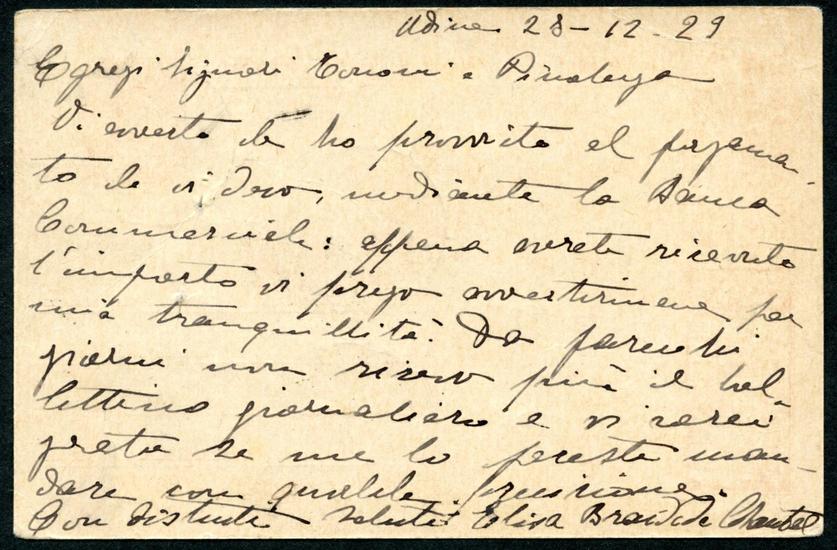 Udine 28-12-29
Egregi Signori Tononi e
Vi avverto che ho provvisto al pagamen-
to che vi devo, mediante la Banca
Commerciale: appena avrete ricevuto
l'importo vi prego avvertirmene per
mia tranquillità. Da parecchi
giorni non ricevo più il bol-
lettino giornaliero e vi sarei
grata se me lo faceste man-
dare con qualche precisione.
Con distinti saluti Elisa de